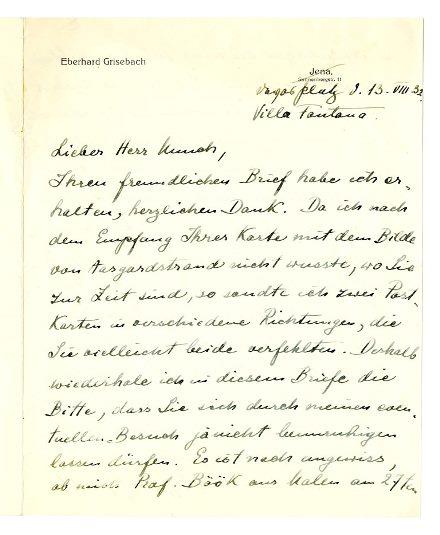 Eberhard Grisebach
Jena,
d. 13. VIII 32
Villa Fontana.
Lieber Herr Munch,
Ihren freundlichen Brief habe ich er-
halten, herzlichen Dank. Da ich nach
dem Empfang Ihrer Karte mit dem Bilde
von Aasgardstrand nicht wusste, wo Sie
zur Zeit sind, so sandte ich zwei Post-
karten in verschiedene Richtungen, die
Sie vielleicht beide verfehlten. Deshalb
wiederhole ich in diesem Briefe die
Bitte, dass Sie sich durch meinen even-
tuellen Besuch ja nicht beunruhigen
lassen dürfen. Es ist noch ungewiss,
ob mich Prof. Böök aus Malen am 27ten